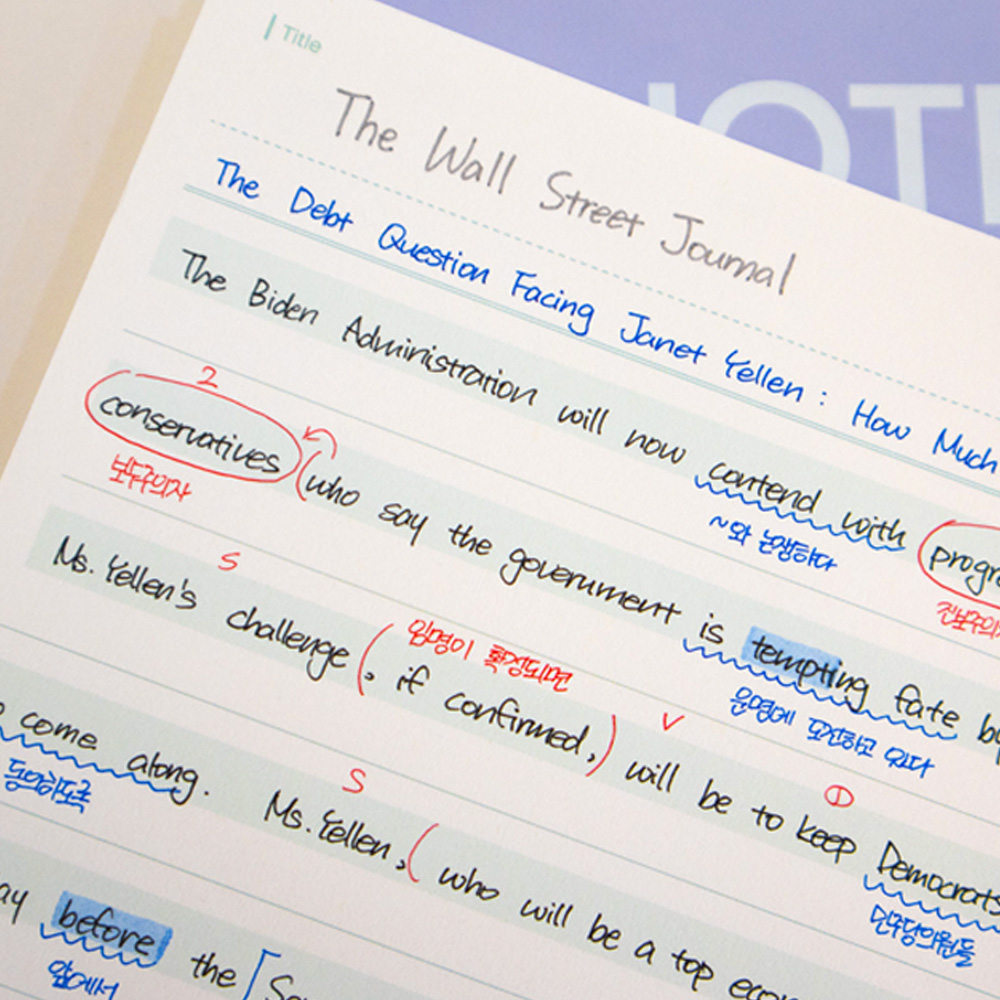 NOTE
Title
The Wall Street Journal
The Debt Question Facing Janet Yellen : How Much
The Biden Administration will now contend with
~와 논쟁하다
2
conservatives (who say the government is tempting fate by
보수주의자
운명에 도전하고 있다
S
임명이 확정되면
V
Ms. Yellen's challenge (, if confirmed,) will be to keep Democrats
①
민주당의원들
come along. Ms. Yellen, (who will be a top
동의하도록
S
before the [
앞에서